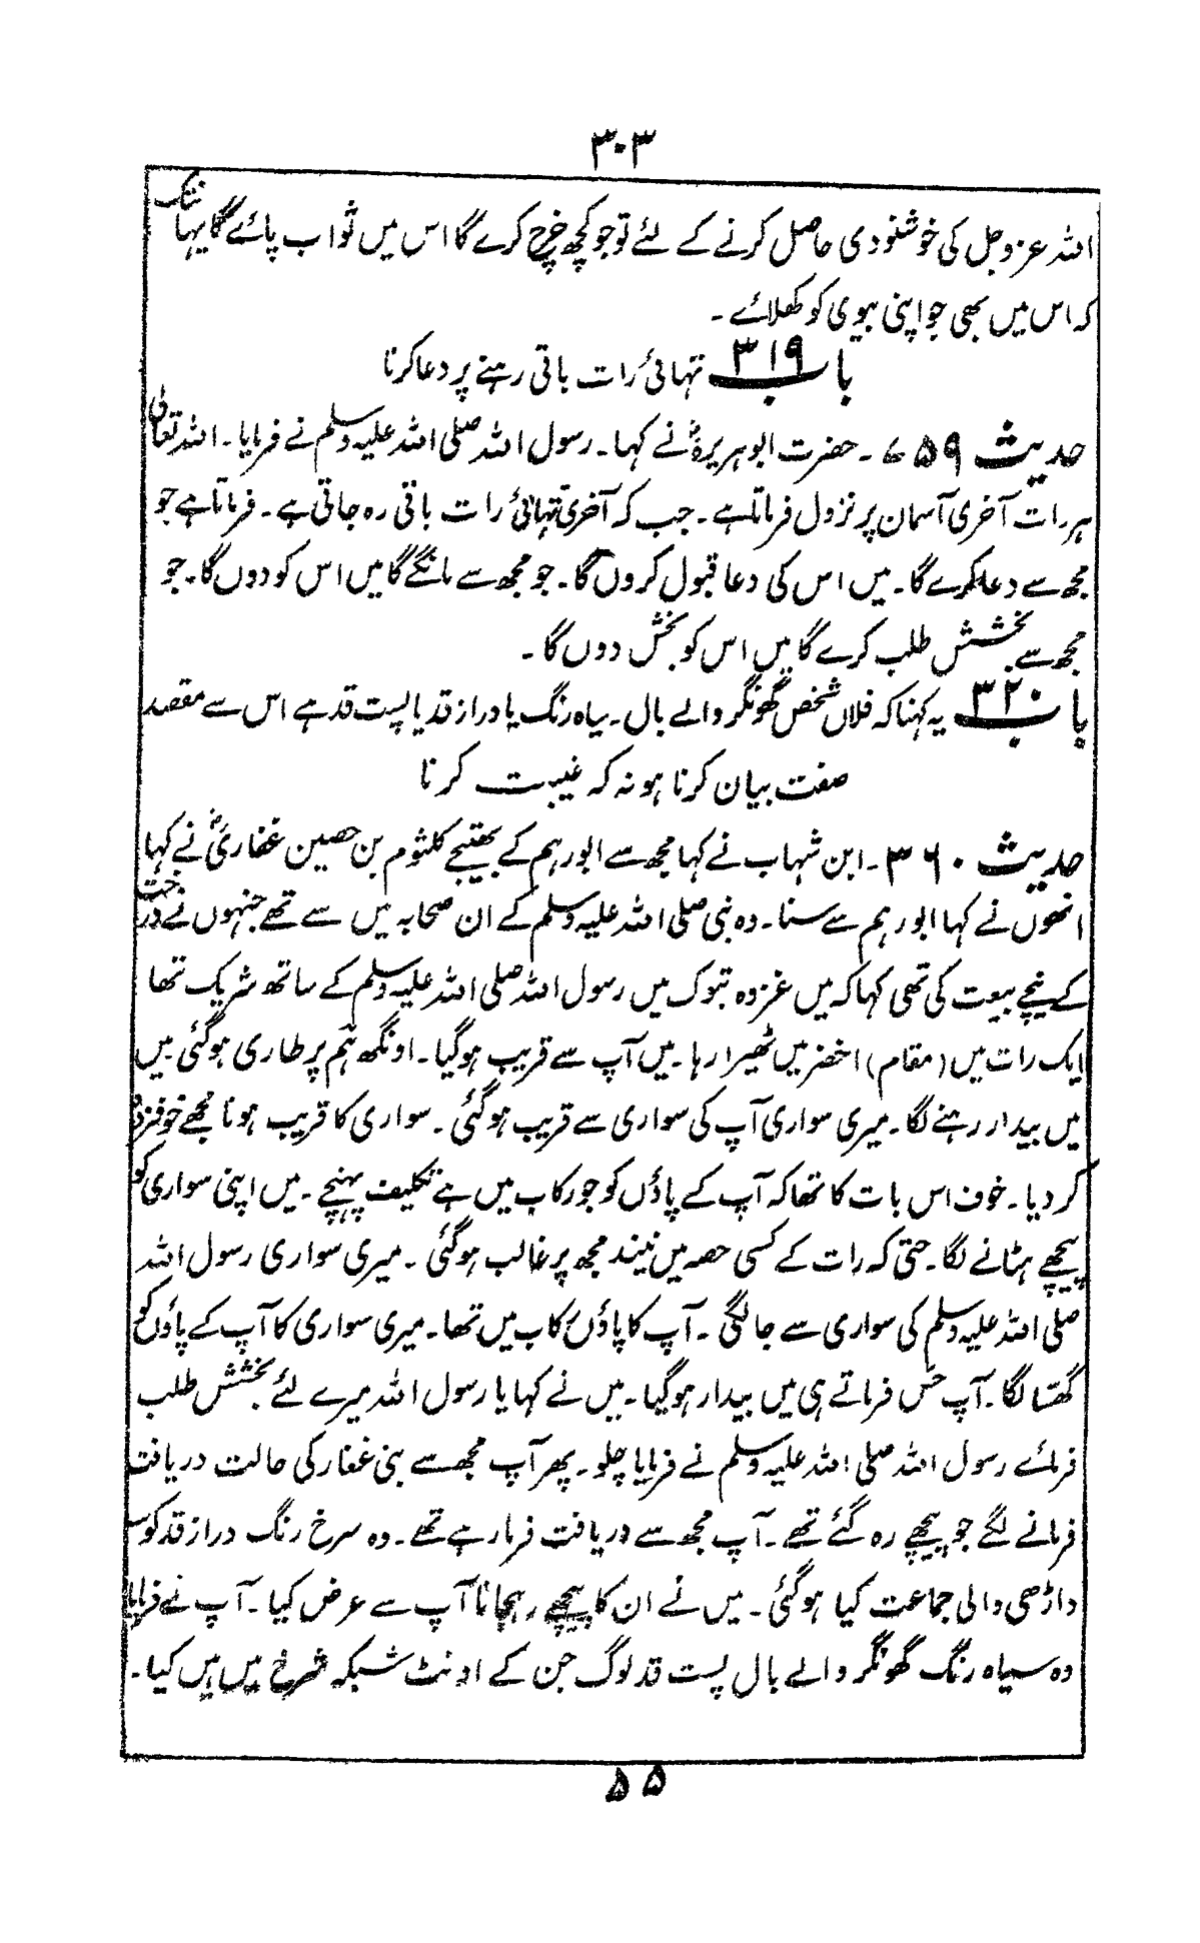 ۳۰۳
اللہ عزوجل کی خوشنودی حاصل کرنے کے لئے تو جو کچھ خرچ کرے گا اس میں ثواب پائے گا یہانتک
کہ اس میں بھی جو اپنی بیوی کو کھلائے ۔
باب ۳۱۹ تہائی رات باقی رہنے پر دعا کرنا
حدیث ۷۵۹ ۔ حضرت ابوہریرہؓ نے کہا ۔ رسول اللہ صلی اللہ علیہ وسلم نے فرمایا ۔ اللہ تعالیٰ
ہر رات آخری آسمان پر نزول فرماتا ہے ۔ جب کہ آخری تہائی رات باقی رہ جاتی ہے ۔ فرماتا ہے جو
مجھ سے دعا کرے گا ۔ میں اس کی دعا قبول کروں گا ۔ جو مجھ سے مانگے گا میں اس کو دوں گا ۔ جو
مجھ سے بخشش طلب کرے گا میں اس کو بخش دوں گا ۔
باب ۳۲۰ یہ کہنا کہ فلاں شخص گھونگر والے بال ۔ سیاہ رنگ یا دراز قد یا پست قد ہے اس سے مقصد
صفت بیان کرنا ہو نہ کہ غیبت کرنا
حدیث ۳۶۰ ۔ ابن شہاب نے کہا مجھ سے ابورہم کے بھتیجے کلثوم بن حصین غفاریؓ نے کہا
انھوں نے کہا ابورہم سے سنا ۔ وہ نبی صلی اللہ علیہ وسلم کے ان صحابہ میں سے تھے جنہوں نے درخت
کے نیچے بیعت کی تھی کہا کہ میں غزوہ تبوک میں رسول اللہ صلی اللہ علیہ وسلم کے ساتھ شریک تھا
ایک رات میں (مقام) اخضر میں ٹھیرا رہا ۔ میں آپ سے قریب ہوگیا ۔ اونگھ ہم پر طاری ہوگئی میں
میں بیدار رہنے لگا ۔ میری سواری آپ کی سواری سے قریب ہوگئی ۔ سواری کا قریب ہونا مجھے خوفزدہ
کر دیا ۔ خوف اس بات کا تھا کہ آپ کے پاؤں کو جو رکاب میں ہے تکلیف پہنچے ۔ میں اپنی سواری کو
پیچھے ہٹانے لگا ۔ حتی کہ رات کے کسی حصہ میں نیند مجھ پر غالب ہوگئی ۔ میری سواری رسول اللہ
صلی اللہ علیہ وسلم کی سواری سے جا لگی ۔ آپ کا پاؤں رکاب میں تھا ۔ میری سواری کا آپ کے پاؤں کو
گھسّا لگا ۔ آپ حس فرماتے ہی میں بیدار ہوگیا ۔ میں نے کہا یا رسول اللہ میرے لئے بخشش طلب
فرمائے رسول اللہ صلی اللہ علیہ وسلم نے فرمایا چلو ۔ پھر آپ مجھ سے بنی غفار کی حالت دریافت
فرمانے لگے جو پیچھے رہ گئے تھے ۔ آپ مجھ سے دریافت فرما رہے تھے ۔ وہ سرخ رنگ دراز قد کوسہ
داڑھی والی جماعت کیا ہوگئی ۔ میں نے ان کا پیچھے رہجانا آپ سے عرض کیا ۔ آپ نے فرمایا
وہ سیاہ رنگ گھونگر والے بال پست قد لوگ جن کے اونٹ شبکہ شرخ میں ہیں کیا ۔
۵۵